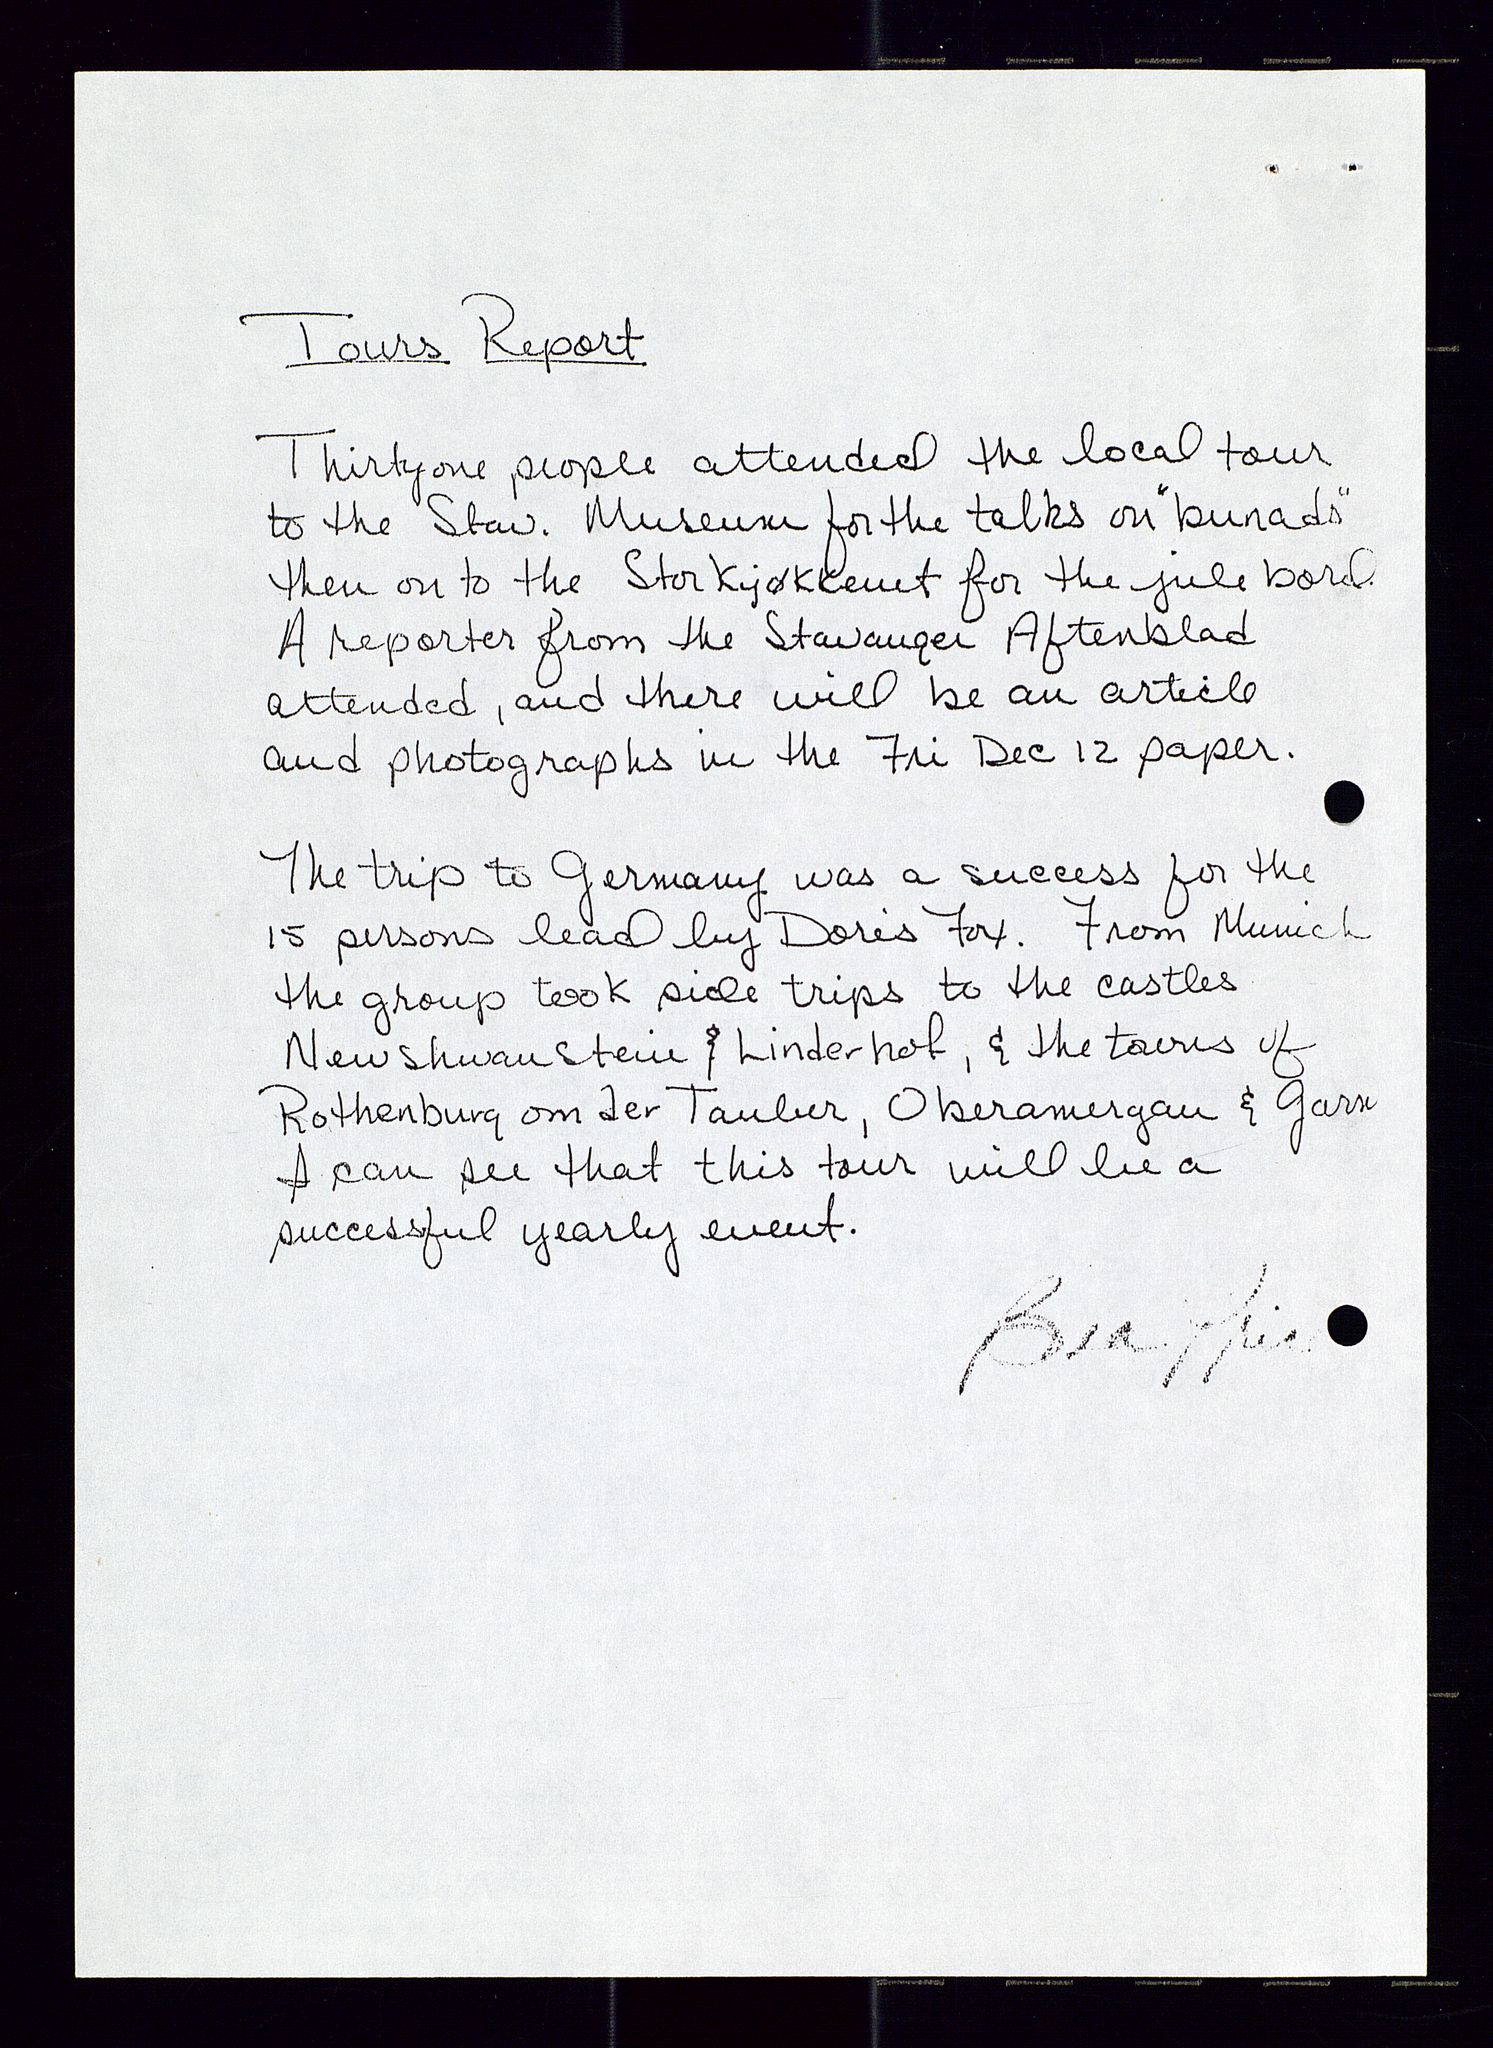 Tours Report
Thirtyone people attended the local tour
to the Stav. Museum for the talks on "bunads"
then on to the Storkjøkkenet for the jule bord.
A reporter from the Stavanger Aftenblad
attended, and there will be an article
and photographs in the Fri Dec 12 paper.
The trip to Germany was a success for the
15 persons lead by Doris Fox. From Munich
the group took side trips to the castles
Newshwanstein & Linderhof, & the towns of
Rothenburg om der Tauber, Oberamergau & Garm
I can see that this tour will be a
successful yearly event.
Bea